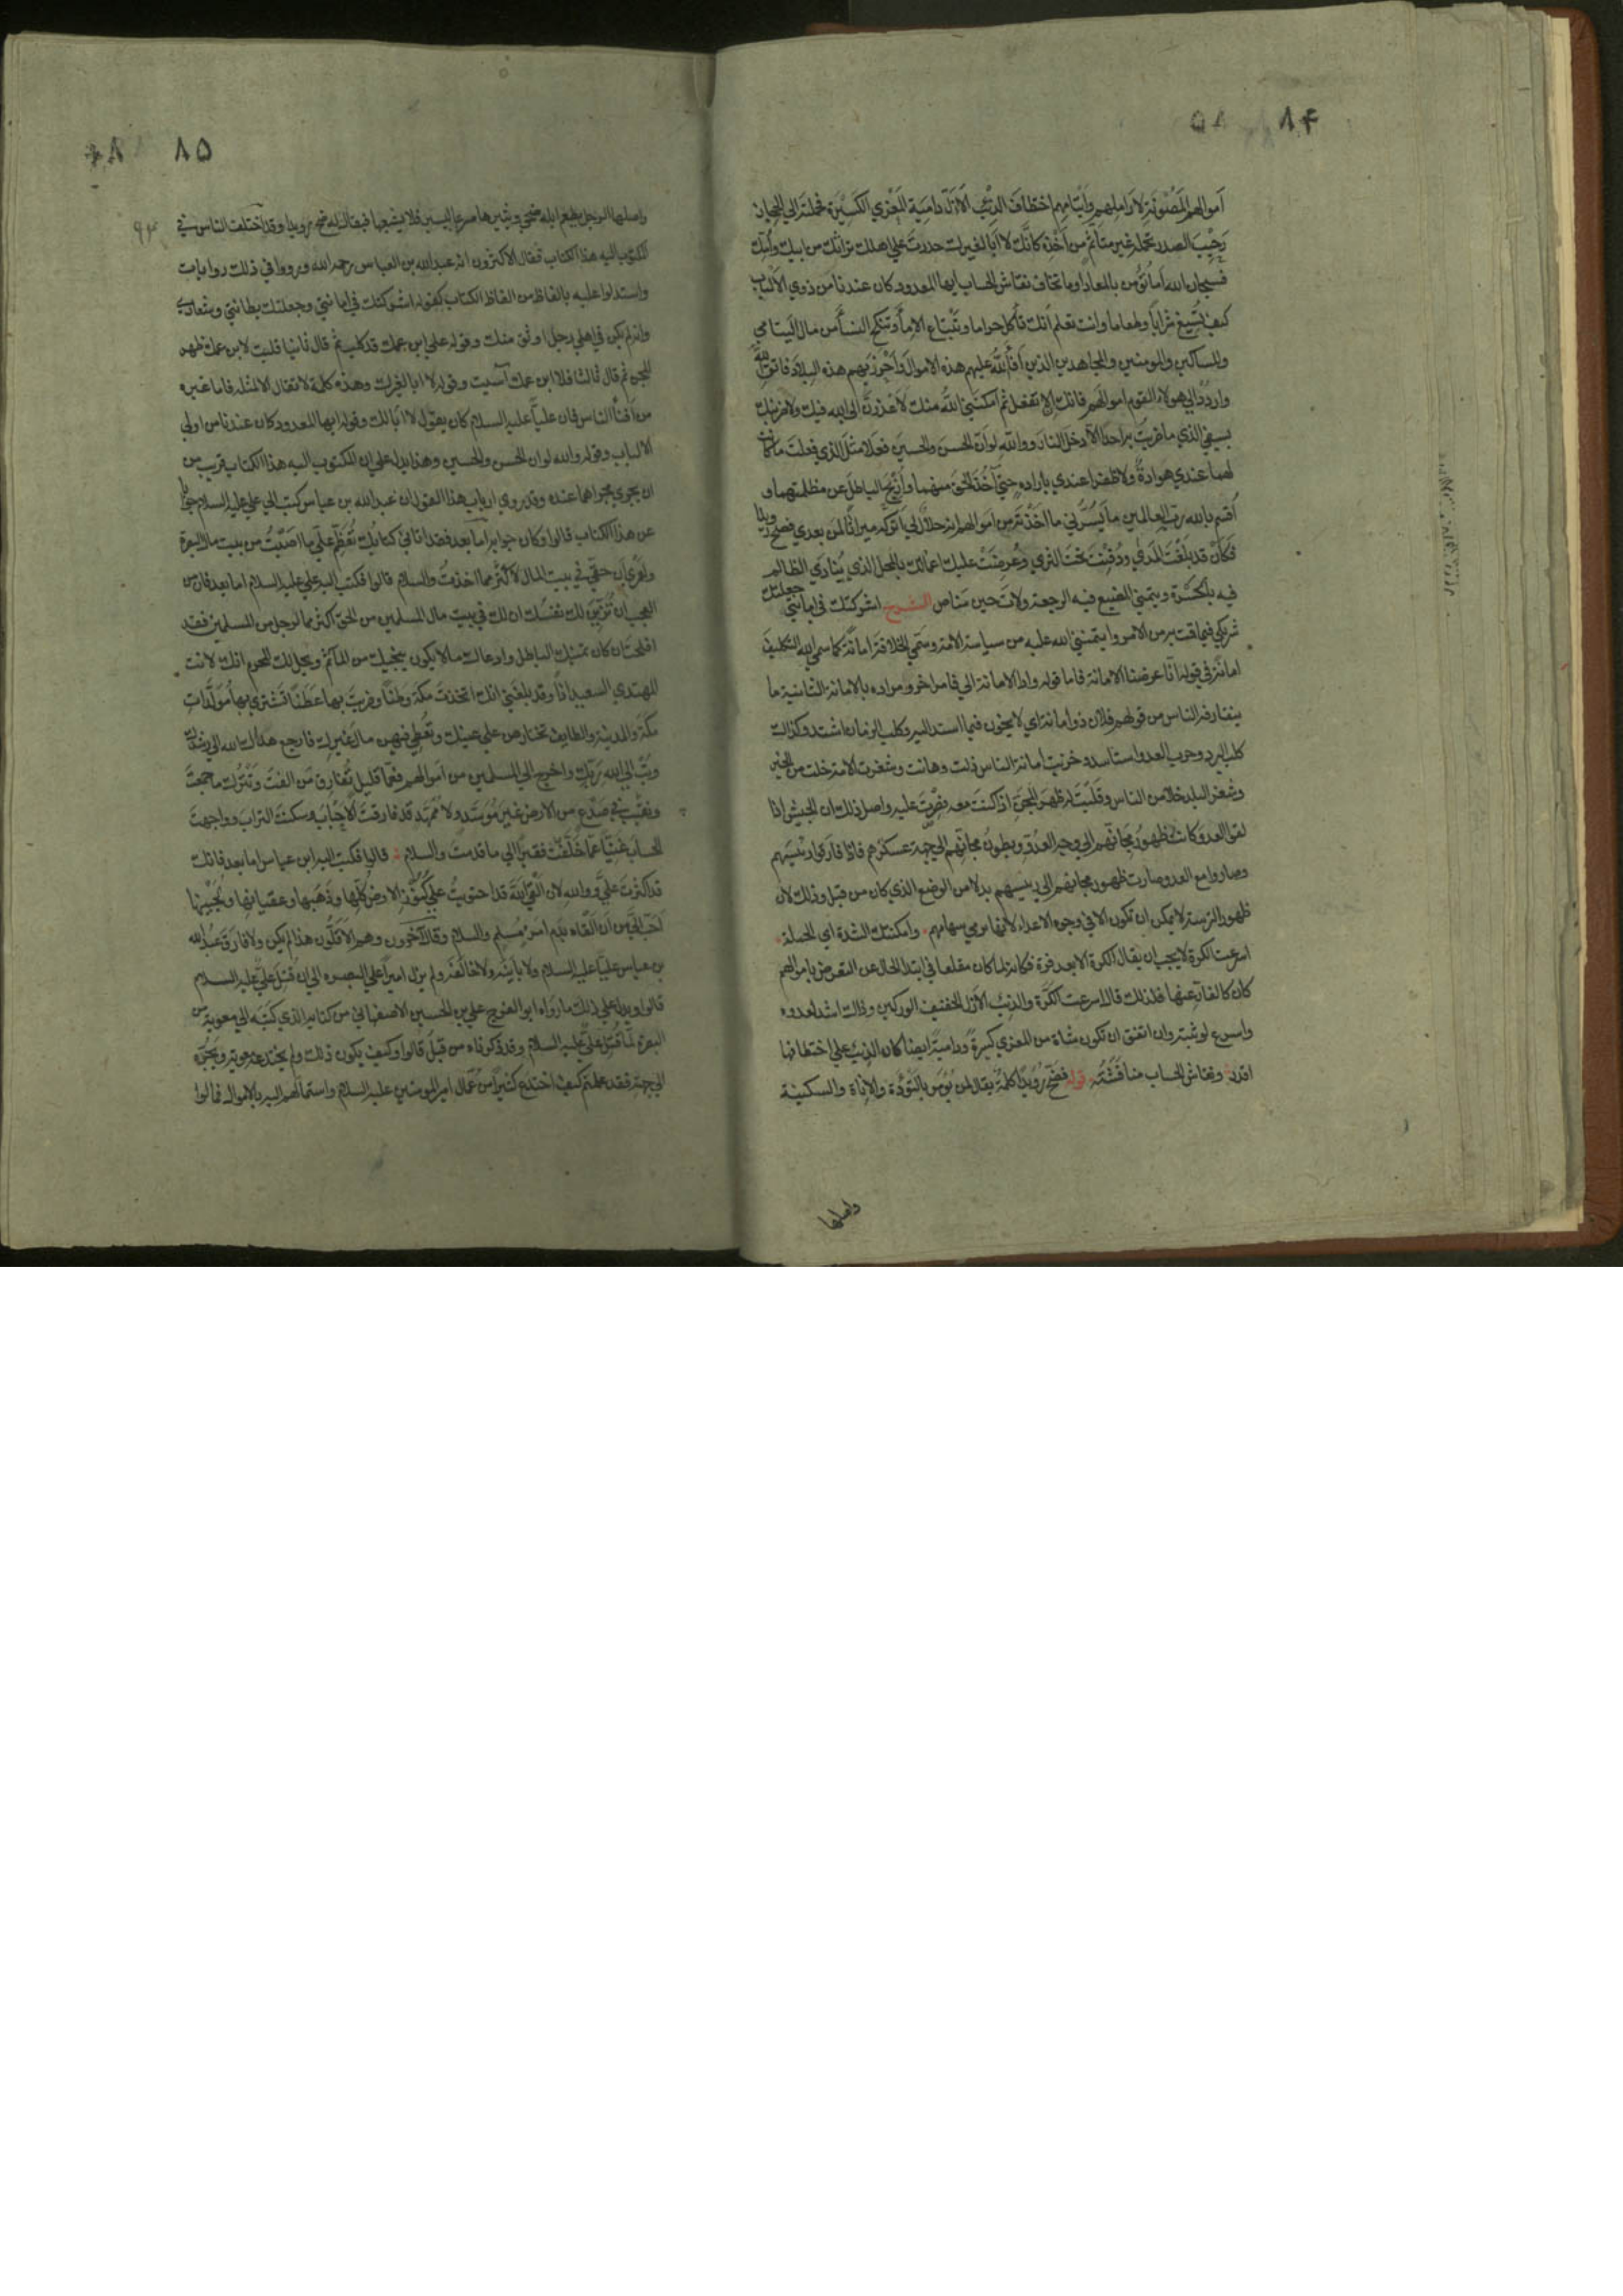 ٨۴
اموالهم المصونة لاراملهم وايتامهم اختطاف الذئب الازل دامية المعزى الكسيرة فحملته الى الحجاز
رحيب الصدر بحمله غير متأثم من اخذه كانك لا ابا لغيرك حدرت على اهلك تراثك من ابيك وامك
فسبحان الله اما تؤمن بالمعاد اوما تخاف نقاش الحساب ايها المعدود كان عندنا من ذوي الالباب
كيف تسيغ شرابا وطعاما وانت تعلم انك تأكل حراما وتبتاع الاماء وتنكح النساء من مال اليتامى
والمساكين والمومنين والمجاهدين الذين افاء الله عليهم هذه الاموال واحرز بهم هذه البلاد فاتق الله
واردد الى هولاء القوم اموالهم فانك ان لم تفعل ثم امكنني الله منك لاعذرن الى الله فيك ولاضربنك
بسيفي الذي ما ضربت به احدا الا دخل النار ووالله لو ان الحسن والحسين فعلا مثل الذي فعلت ما كانت
لهما عندي هوادة ولا ظفرا عندي بارادة حتى آخذ الحق منهما وازيح الباطل عن مظلمتهما و
اقسم بالله رب العالمين ما يسرني ما اخذته من اموالهم انه حلال لي اتركه ميراثا لمن بعدي فضح رويدا
فكان قد بلغت المدى ودفنت تحت الثرى وعرضت عليك اعمالك بالمحل الذي ينادي الظالم
فيه بالحسرة ويتمنى المضيع فيه الرجعة ولات حين مناص الشرح اشركتك في امانتي جعلتك
شريكي فيما قمت به من الامر وايتمنني الله عليه من سياسة الامة وسمى الخلافة امانة كما سمى الله التكليف
امانة في قوله انا عرضنا الامانة فاما قوله واداء الامانة الي فامر اخر ومراده بالامانة الثانية ما
يتعارفه الناس من قولهم فلان ذو امانة اي لا يخون فيما اسند اليه وكلب الزمان اشتد وكذلك
كلب البرد وحرب العدو استاسد وخزيت امانة الناس ذلت وهانت وشغرت الامة خلت من الخير
وشغر البلد خلا من الناس وقلبت له ظهر المجن اذا كنت معه فصرت عليه واصل ذلك ان الجيش اذا
لقوا العدو كانت ظهور مجانهم الى وجه العدو وبطون مجانهم الى جهة عسكرهم فاذا فارقوا رئيسهم
وصاروا مع العدو صارت ظهور مجانهم الى رئيسهم بدلا من الوضع الذي كان من قبل وذلك لان
ظهور الترسة لا يمكن ان تكون الا في وجوه الاعداء لانها مرمى سهامهم وامكنتك الشدة اي الحملة
اسرعت الكرة لا يجب ان يقال الكرة الا بعد فرة فكانه لما كان مقلعا في ابتداء الحال عن التعرض باموالهم
كان كالفار عنها فلذلك قال اسرعت الكرة والذئب الازل الخفيف الوركين وذلك اشد لعدوه
واسرع لوثبته وان اتفق ان تكون شاة من المعزى كسيرة ودامية ايضا كان الذئب على اختطافها
اقدر ونقاش الحساب مناقشته قوله فضح رويدا كلمة يقال لمن يؤمر بالتؤدة والاناة والسكينة
واصلها
٨۵
واصلها الرجل يطعم ابله ضحى ويسيرها مسرعا ليسير فلا يشبعها فيقال له ضح رويدا وقد اختلف الناس في
المكتوب اليه هذا الكتاب فقال الاكثرون انه عبد الله بن العباس رحمه الله ورووا في ذلك روايات
واستدلوا عليه بالفاظ من الفاظ الكتاب كقوله اشركتك في امانتي وجعلتك بطانتي وشعاري
وانه لم يكن في اهلي رجل اوثق منك وقوله على ابن عمك قد كلب ثم قال ثانيا قلبت لابن عمك ظهر
المجن ثم قال ثالثا فلا ابن عمك آسيت وقوله لا ابا لغيرك وهذه كلمة لا تقال الا لمثله فاما غيره
من افناء الناس فان عليا عليه السلام كان يقول لا ابا لك وقوله ايها المعدود كان عندنا من اولي
الالباب وقوله والله لو ان الحسن والحسين وهذا يدل على ان المكتوب اليه هذا الكتاب قريب من
ان يجري مجراهما عنده وقد روى ارباب هذا القول ان عبد الله بن عباس كتب الى علي عليه السلام جوابا
عن هذا الكتاب قالوا وكان جوابه اما بعد فقد اتاني كتابك تعظم علي ما اصبت من بيت مال البصرة
ولعمري ان حقي في بيت المال لاكثر مما اخذت والسلام قالوا فكتب اليه علي عليه السلام اما بعد فان من
العجب ان تزين لك نفسك ان لك في بيت مال المسلمين من الحق اكثر مما لرجل من المسلمين فقد
افلحت ان كان تمنيك الباطل وادعاك ما لا يكون ينجيك من المآثم ويحل لك المحرم انك لانت
المهتدي السعيد اذا وقد بلغني انك اتخذت مكة وطنا وضربت بها عطنا تشتري بها مولدات
مكة والمدينة والطايف تختارهن على عينك وتعطي فيهن مال غيرك فارجع هداك الله الى رشدك
وتب الى الله ربك واخرج الى المسلمين من اموالهم فعما قليل تفارق من الفت وتترك ما جمعت
وتغيب في صدع من الارض غير موسد ولا ممهد قد فارقت الاحباب وسكنت التراب وواجهت
الحساب غنيا عما خلفت فقيرا الى ما قدمت والسلام قالوا فكتب اليه ابن عباس اما بعد فانك
قد اكثرت علي ووالله لان القى الله قد احتويت على كنوز الارض كلها وذهبها وعقيانها ولجينها
احب الي من ان القاه بدم امرئ مسلم والسلام وقال آخرون وهم الاقلون هذا لم يكن ولا فارق عبد الله
بن عباس عليا عليه السلام ولا باينه ولا خالفه ولم يزل اميرا على البصره الى ان قتل علي عليه السلام
قالوا ويدل على ذلك ما رواه ابو الفرج علي بن الحسين الاصفهاني من كتابه الذي كتبه الى معوية من
البصرة لما قتل علي عليه السلام وقد ذكرناه من قبل قالوا وكيف يكون ذلك ولم يختدعه معوية ويجره
الى جهته فقد علمتم كيف اختدع كثيرا من عمال امير المومنين عليه السلام واستمالهم اليه بالاموال فمالوا